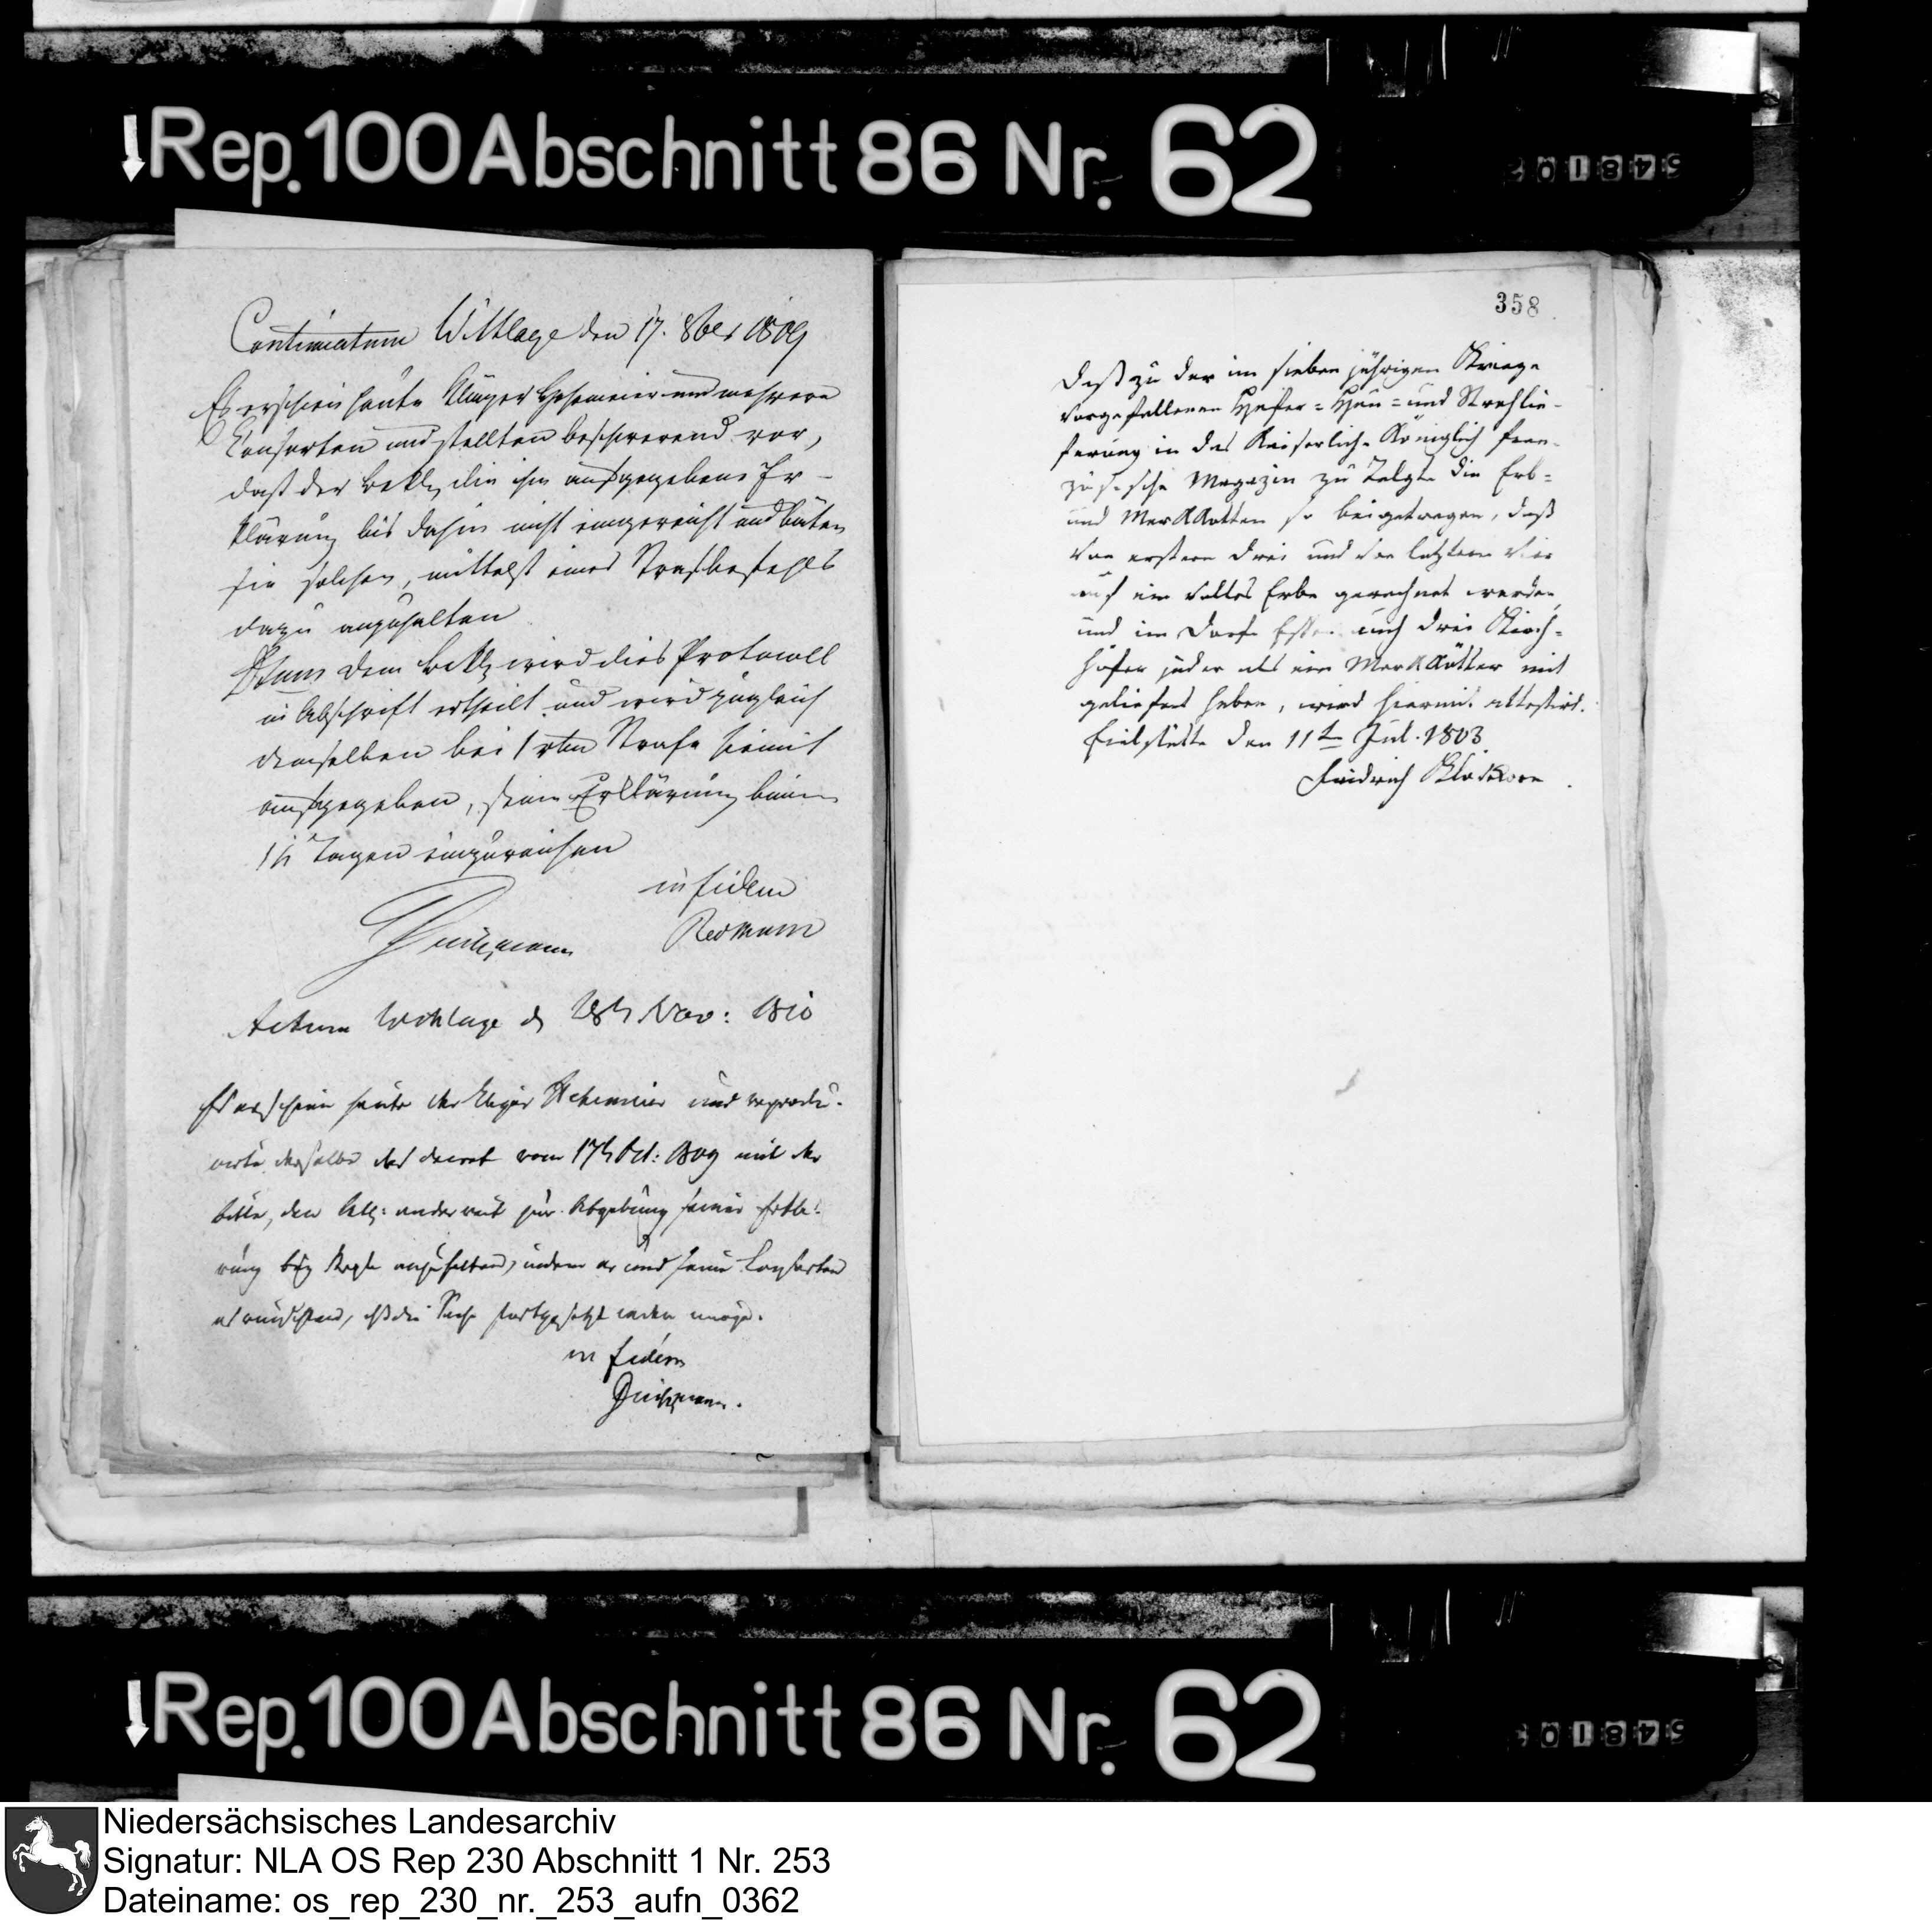 Rep. 100 Abschnitt 86 Nr. 62
548102
Continuatum Wittlage den 17. 8ber 1809
Es erschien heute Kläger und mehrere
Consorten und stellten beschwerend vor,
daß der Bekl. die ihm aufgegebene Er-
klärung bis dahin nicht eingereicht und bäten
sie solchen, mittelst eines Strafbefehls
dazu anzuhalten
Dtum dem Bekl. wird dies Protocoll
in Abschrift ertheilt und wird zugleich
demselben bei 1 rthlr Strafe hiemit
aufgegeben, seine Erklärung binnen
14 Tagen einzureichen
in fidem
Redmann
Actum Wittlage d 28t Nov: 1810
Es erschien heute der Kläger und reprodu-
cirte derselbe das decret vom 17t Oct: 1809 mit der
Bitte, den Bekl: anderweit zur Abgebung seiner Erklä-
rung anzuhalten, indem er und seine Consorten
es wünschten, daß die Sache fortgesetzt werden möge.
in fidem
358
Daß zu der im sieben jährigen Kriege
vorgefallenen Hafer= Heu= und Stroh lie-
ferung in das Kaiserlich= Königlich fran-
zösische Magazin zu Telgte die Erb=
und MarkKotten so beigetragen, daß
von erstern drei und von letztern vier
auf ein volles Erbe gerechnet werden
und im Dorfe Essen auch drei Kirch=
höfer jeder als ein MarkKötter mit
geliefert haben, wird hiermit attestirt.
Eielstette den 11t Jul. 1803
Friedrich
Rep. 100 Abschnitt 86 Nr. 62
548102
Niedersächsisches Landesarchiv
Signatur: NLA OS Rep 230 Abschnitt 1 Nr. 253
Dateiname: os_rep_230_nr._253_aufn_0362